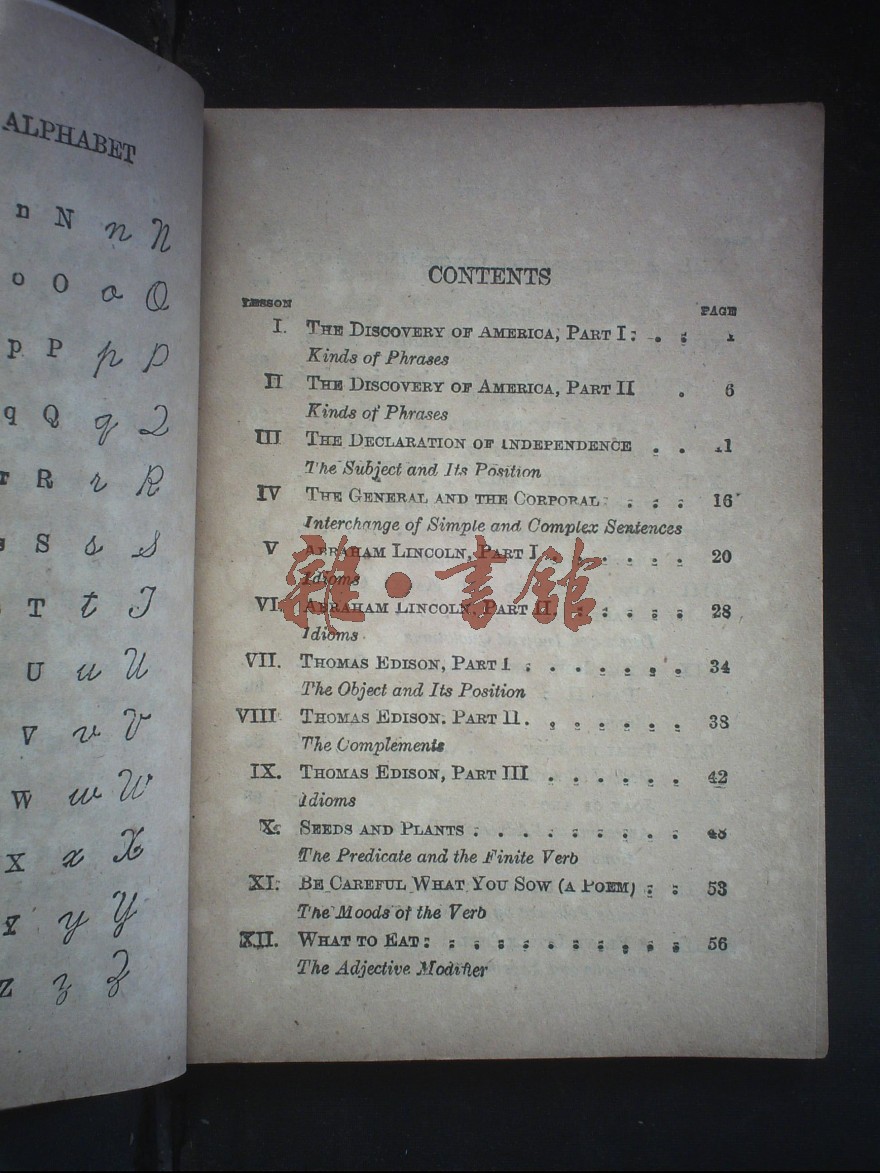 ALPHABET
n N n N
o O o O
p P p P
q Q q Q
r R r R
s S s S
T t T
U u U
V v V
W w W
X x X
Y y Y
Z z Z
CONTENTS
LESSON PAGE
I. THE DISCOVERY OF AMERICA, PART I. . . 1
Kinds of Phrases
II THE DISCOVERY OF AMERICA, PART II . 6
Kinds of Phrases
III THE DECLARATION OF INDEPENDENCE . . 11
The Subject and Its Position
IV THE GENERAL AND THE CORPORAL . . . 16
Interchange of Simple and Complex Sentences
V ABRAHAM LINCOLN, PART I . . . . . . 20
Idioms
VI. ABRAHAM LINCOLN, PART II. . . . . . 28
Idioms
雜·書館
VII. THOMAS EDISON, PART I . . . . . . 34
The Object and Its Position
VIII THOMAS EDISON. PART II. . . . . . . 38
The Complements
IX. THOMAS EDISON, PART III . . . . . . 42
Idioms
X. SEEDS AND PLANTS . . . . . . . . . 48
The Predicate and the Finite Verb
XI. BE CAREFUL WHAT YOU SOW (A POEM) . . 53
The Moods of the Verb
XII. WHAT TO EAT . . . . . . . . . . 56
The Adjective Modifier